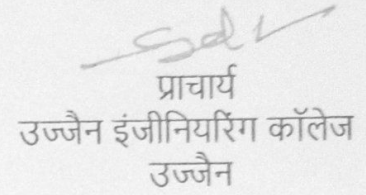 Sd/-
प्राचार्य
उज्जैन इंजीनियरिंग कॉलेज
उज्जैन